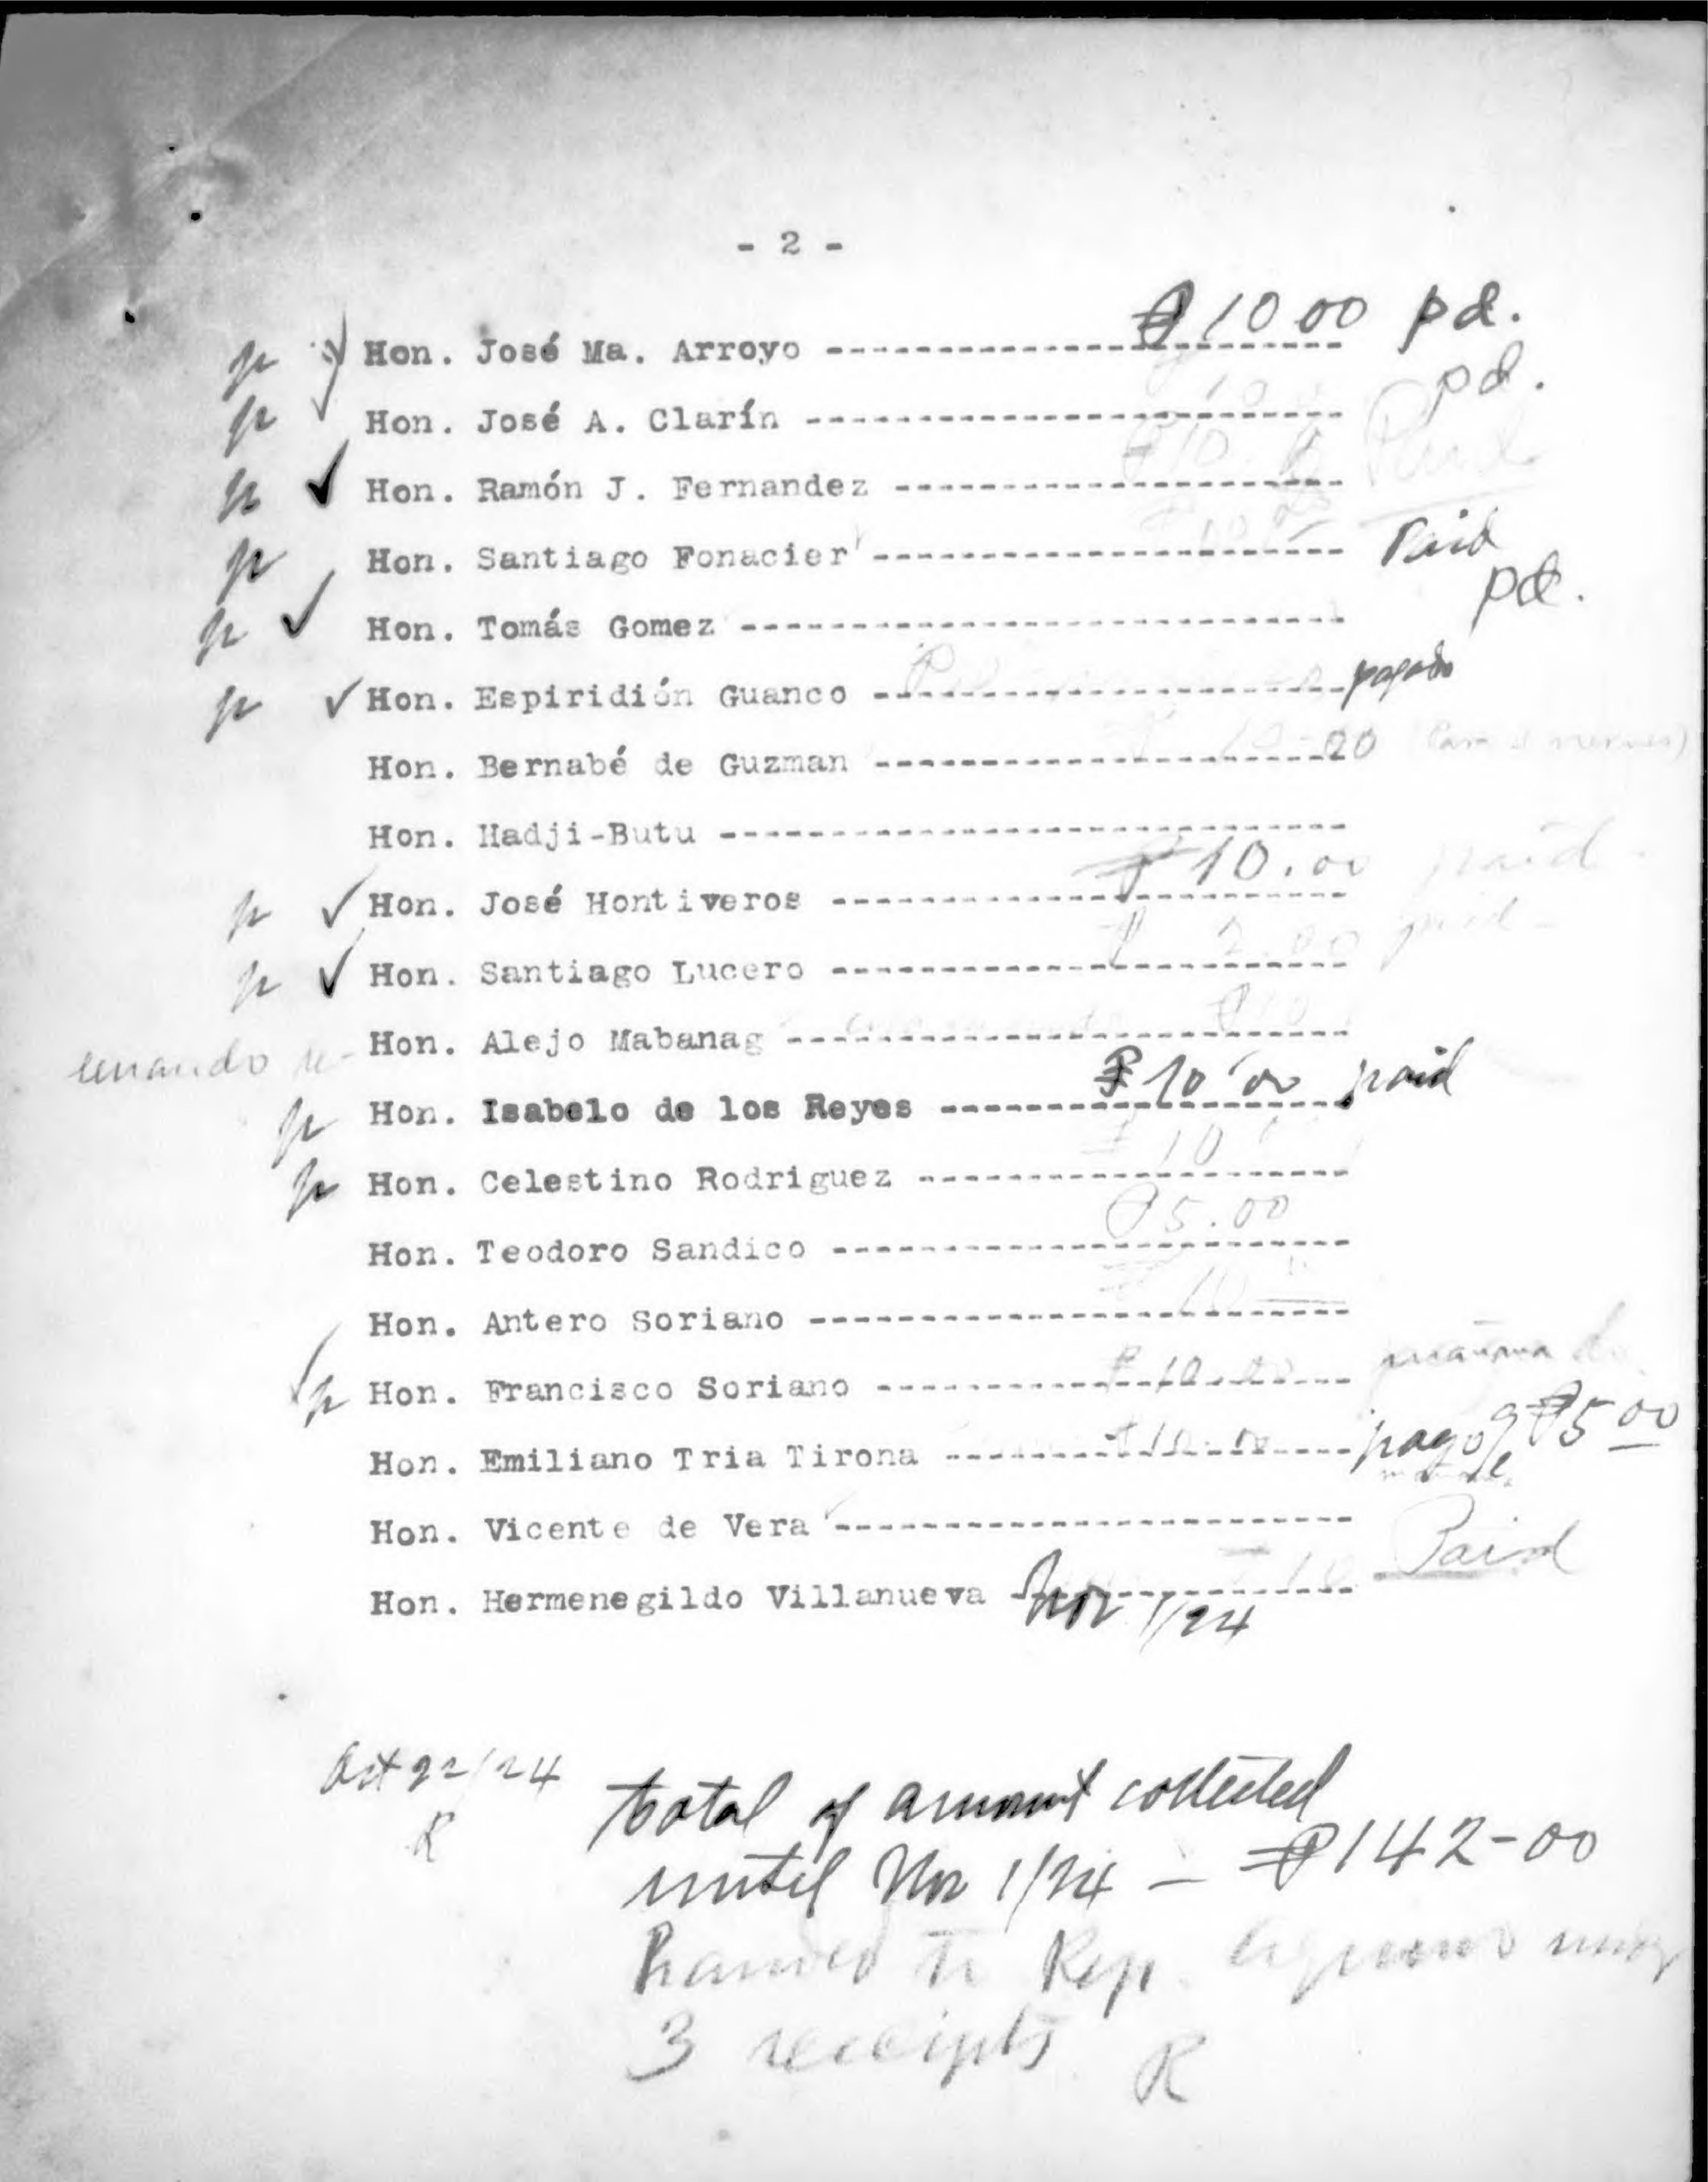 - 2 -
p Hon. José Ma. Arroyo ---------- ₱10 00 pd.
p ✓ Hon. José A. Clarín ---------- 10 pd.
p ✓ Hon. Ramón J. Fernandez ---------- ₱10. Paid
p Hon. Santiago Fonacier ---------- Paid
p ✓ Hon. Tomás Gomez ---------- pd.
p ✓ Hon. Espiridión Guanco ---------- pagado
Hon. Bernabé de Guzman ----------
Hon. Hadji-Butu ----------
p ✓ Hon. José Hontiveros ---------- ₱10.00 paid -
p ✓ Hon. Santiago Lucero ---------- ₱ 2.00 paid -
Hon. Alejo Mabanag ---------- ₱10
p Hon. Isabelo de los Reyes ---------- ₱10 00 paid
p Hon. Celestino Rodriguez ---------- ₱10
Hon. Teodoro Sandico ---------- ₱5.00
Hon. Antero Soriano ---------- ₱10
p Hon. Francisco Soriano ---------- ₱10.00 mañana
Hon. Emiliano Tria Tirona ---------- ₱10.00 pago ₱5 00
Hon. Vicente de Vera ----------
Hon. Hermenegildo Villanueva ---------- ₱10 Paid
Nov 1/24
Oct 22/24
R
total of amount collected
until Nov 1/24 - ₱142-00
handed to Rep.
3 receipts R